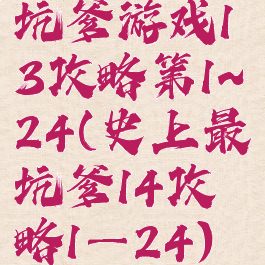 坑爹游戏1
3攻略第1~
24(史上最
坑爹14攻
略1一24)